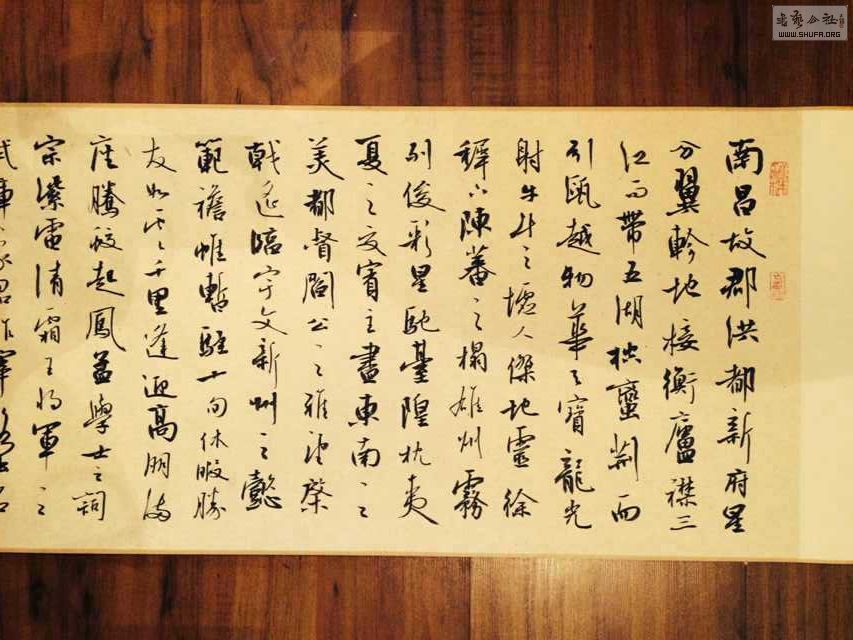 南昌故郡洪都新府星
分翼軫地接衡廬襟三
江而帶五湖控蠻荊而
引甌越物華天寶龍光
射牛斗之墟人傑地靈徐
穉下陳蕃之榻雄州霧
列俊彩星馳臺隍枕夷
夏之交賓主盡東南之
美都督閻公之雅望棨
戟遙臨宇文新州之懿
範襜帷暫駐十旬休暇勝
友如雲千里逢迎高朋滿
座騰蛟起鳳孟學士之詞
宗紫電清霜王將軍之
武庫家君作宰路出名
書藝公社
WWW.SHUFA.ORG